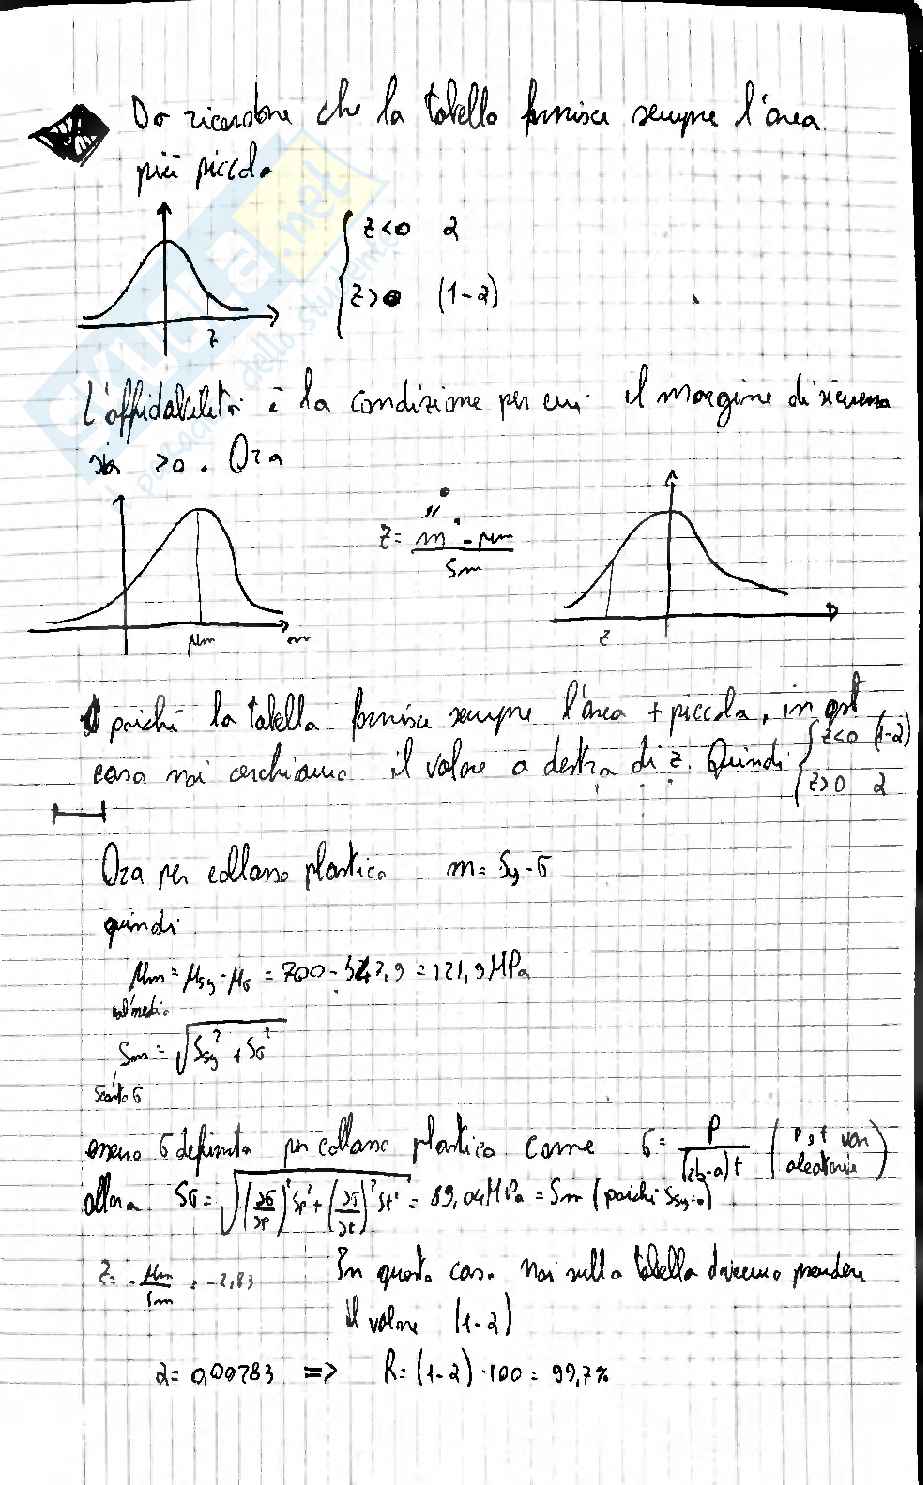 Da ricordare che la tabella fornisce sempre l'area
più piccola
z<0 α
z>0 (1-α)
z
L'affidabilità è la condizione per cui il margine di sicurezza
sia >0. Ora
z = (m - μm) / Sm
0
μm m
z
poiché la tabella fornisce sempre l'area + piccola, in qst
caso noi cerchiamo il valore a destra di z. Quindi
z<0 (1-α)
z>0 α
Ora per collasso plastico m = Sy - σ
quindi
μm = μsy - μσ = 700 - 547,9 = 121,9 MPa
val medio
Sm = √(Ssy² + Sσ²)
essendo σ definita per collasso plastico come σ = P / ((2b-a)t) (P e t var aleatorie)
allora Sσ = √((∂σ/∂P)² SP² + (∂σ/∂t)² St²) = 89,04 MPa = Sm (poiché Ssy=0)
z = - μm / Sm = -2,83
In questo caso noi sulla tabella dovremo prendere
il valore (1-α)
α = 0,00783 => R = (1-α)·100 = 99,7%
skuola.net